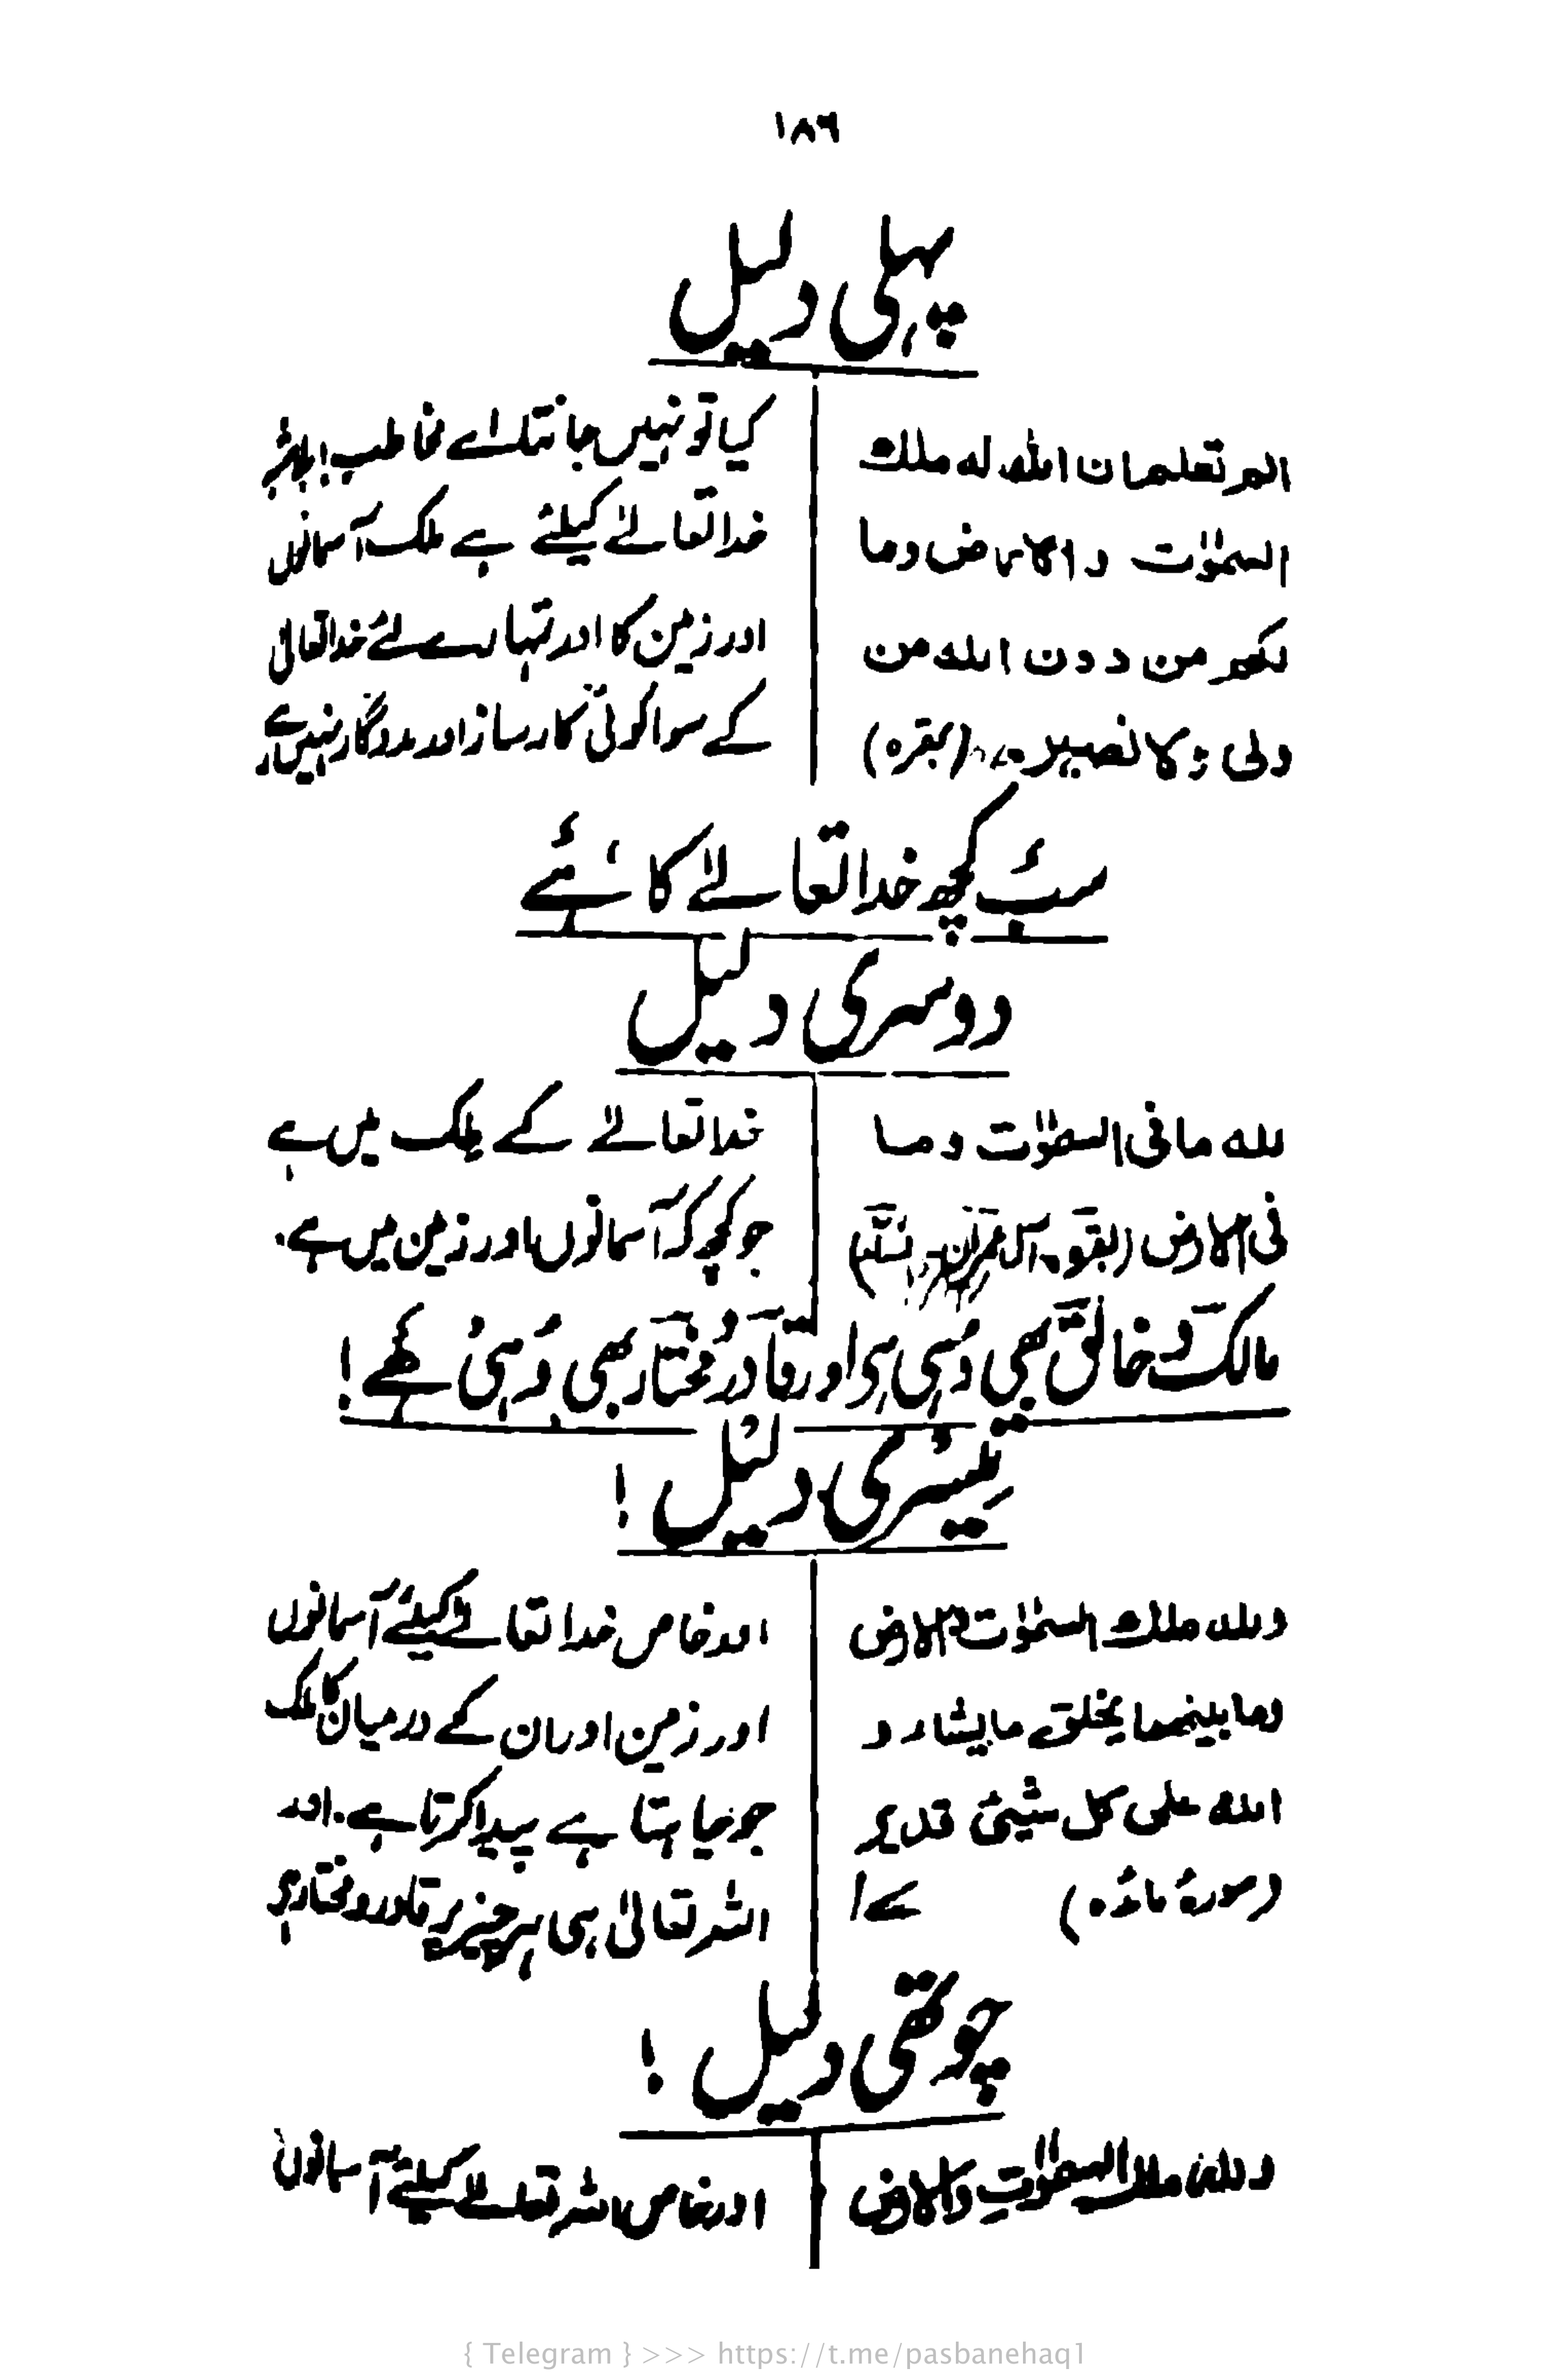 ۱۸۶
پہلی دلیل
الم تعلم ان الله له ملك
السمٰوٰت والارض وما
لكم من دون الله من
ولی ولا نصیر (بقره)
کیا تو نہیں جانتا کہ اے مخاطب!
خدا تعالےٰ کیلئے ہے ملک آسمانوں
اور زمین کا اور تمہارے لئے خدا تعالیٰ
کے سوا کوئی کارساز اور مددگار نہیں ہے
سب کچھ خدا تعالےٰ کا ہے
دوسری دلیل
لله ما فی السمٰوٰت وما
فی الارض (بقره۔ آل عمران۔ نساء)
خدا تعالےٰ کے ملک میں ہے
جو کچھ کہ آسمانوں اور زمین میں ہے۔
مالک و خالق بھی وہی ہی اور قادر و مختار بھی وہی ہے!
تیسری دلیل!
ولله ملك السمٰوٰت والارض
وما بينهما يخلق ما يشاء و
الله على كل شيئ قدير
(سورۂ مائدہ)
اور خاص خدا تعالےٰ کیلئے آسمانوں
اور زمین اور ان کے درمیان کا ملک
جو چاہتا ہے پیدا کرتا ہے۔ اور
اللہ تعالیٰ ہی ہر چیز پر قادر و مختار ہے
چوتھی دلیل!
ولله ملك السمٰوٰت والارض
اور خاص اللہ تعالےٰ کیلئے آسمانوں
{ Telegram } >>> https://t.me/pasbanehaq1